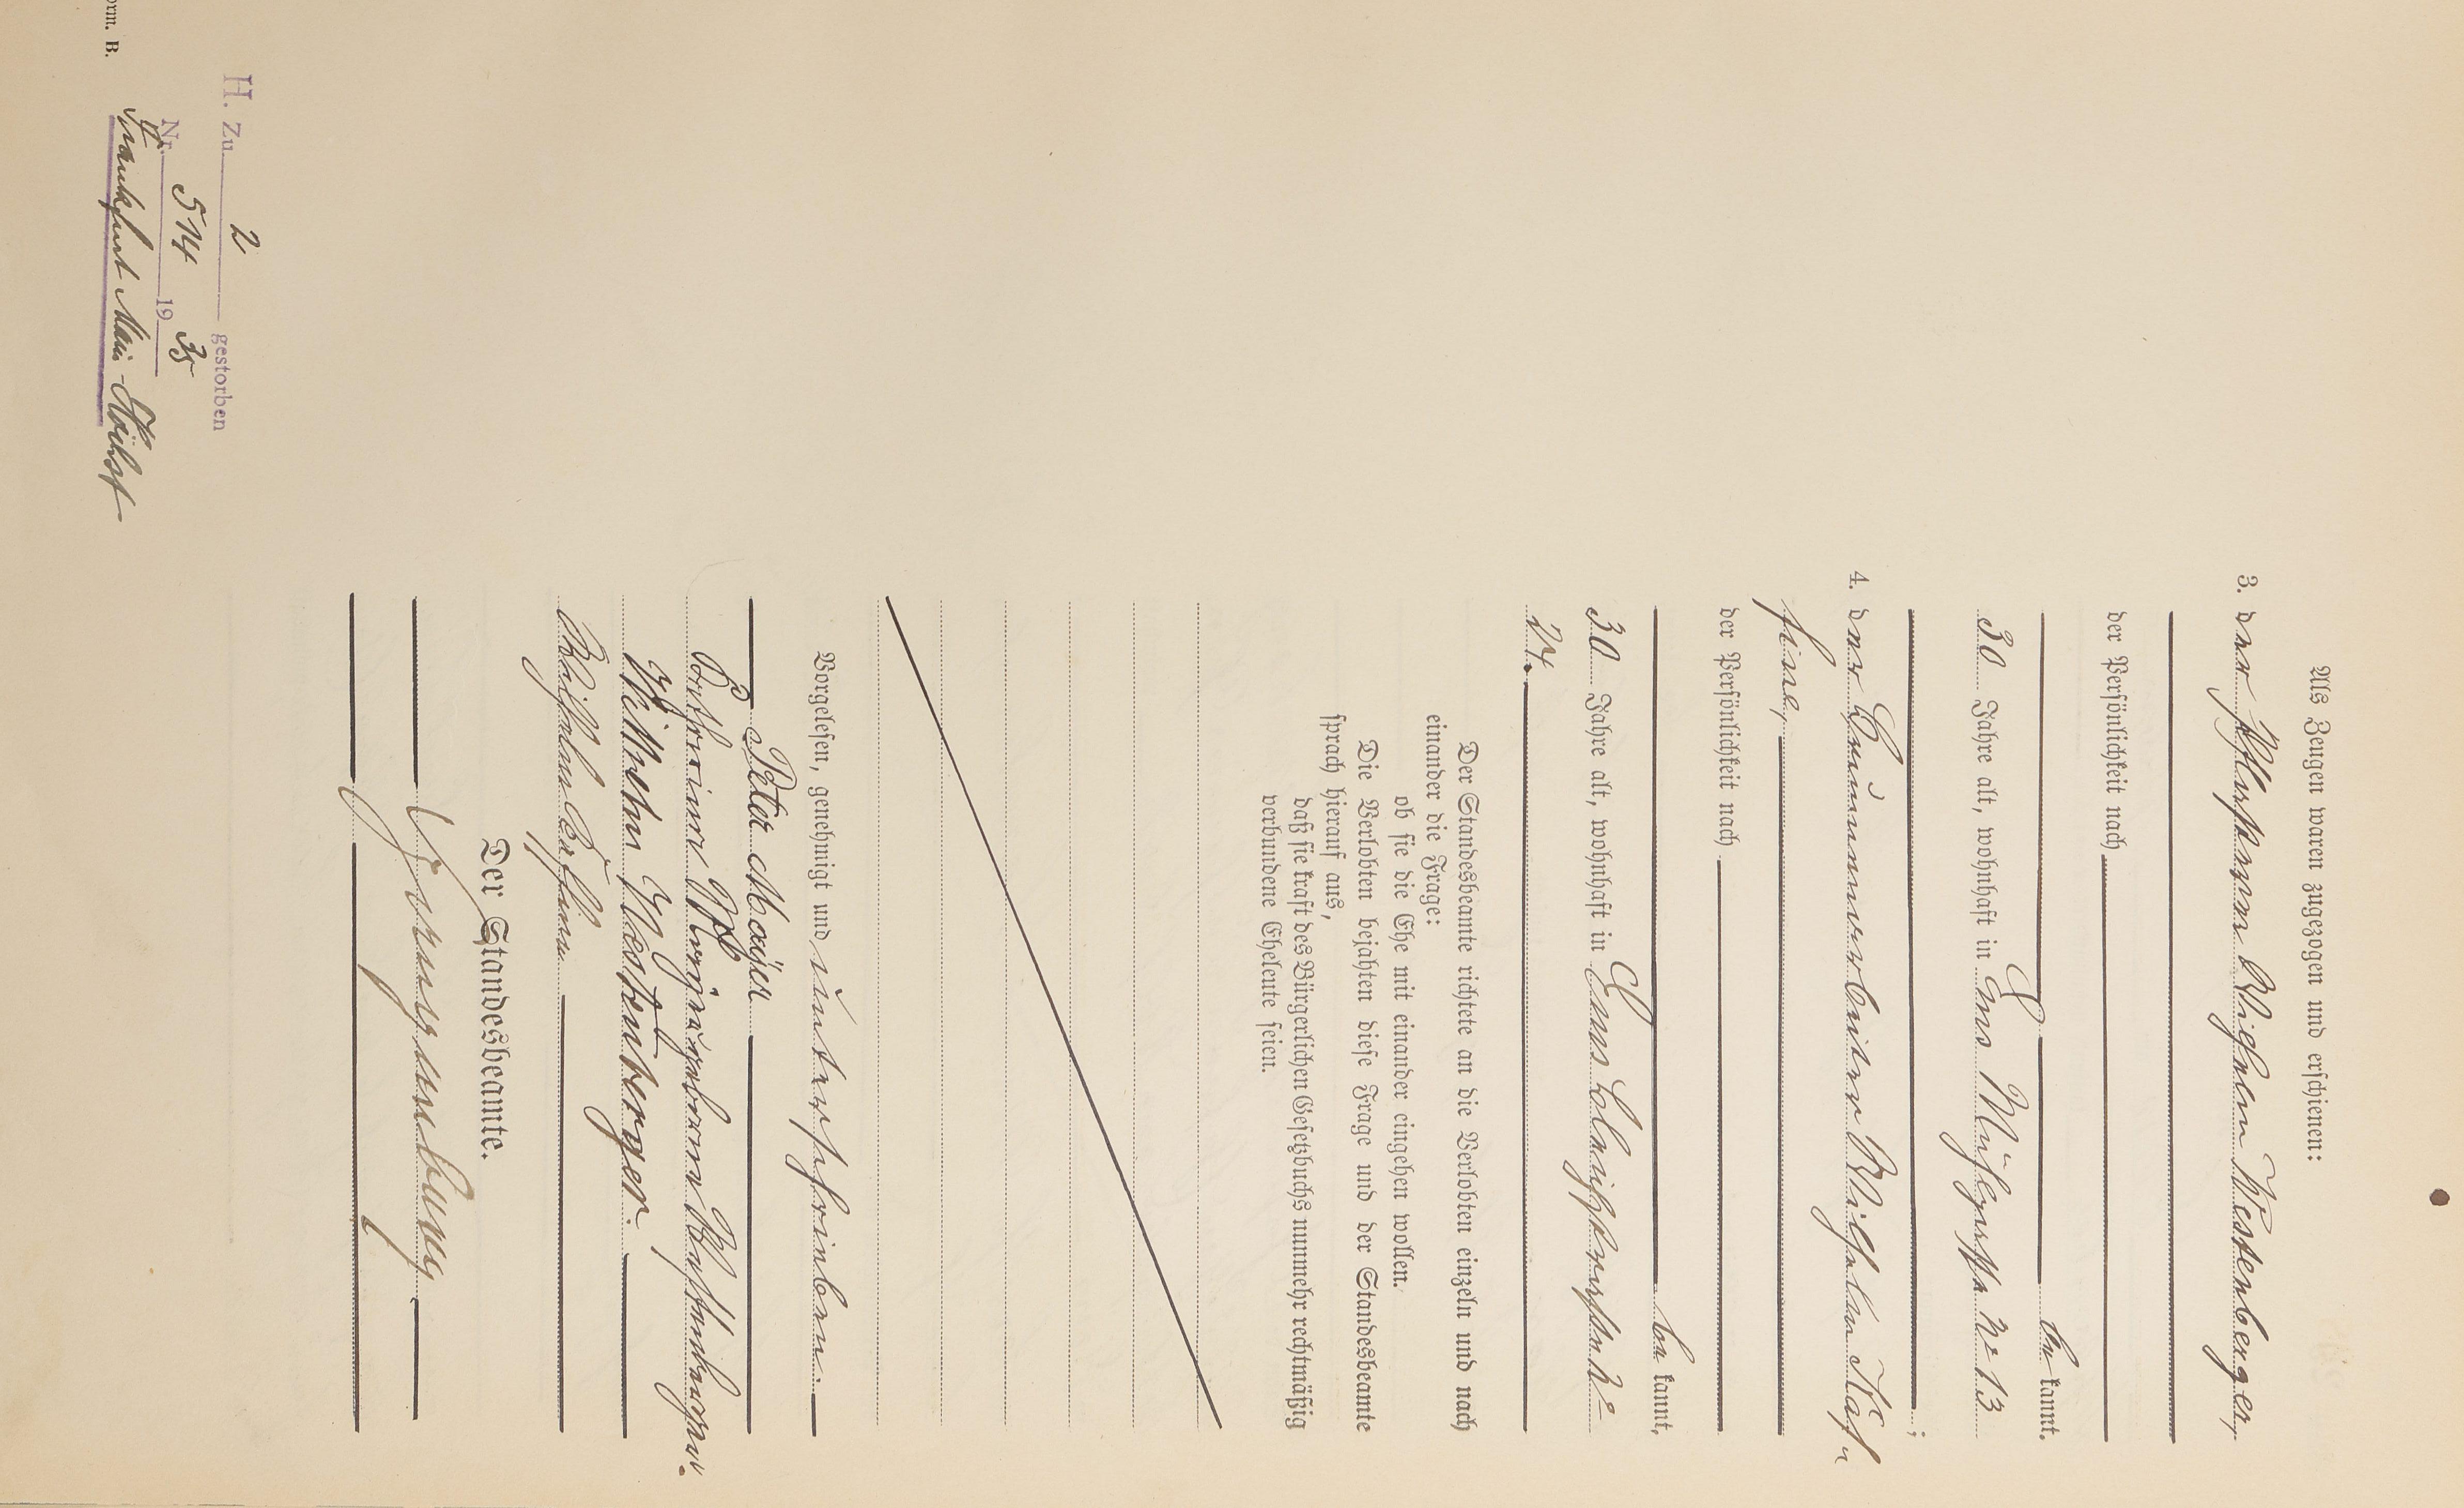 Als Zeugen waren zugezogen und erschienen:
3. der Wilhelm Westenberger,
der Persönlichkeit nach
be kannt,
30 Jahre alt, wohnhaft in Ems No 13
;
4. der Wilhelm
der Persönlichkeit nach
be kannt,
30 Jahre alt, wohnhaft in Ems No
24.
Der Standesbeamte richtete an die Verlobten einzeln und nach
einander die Frage:
ob sie die Ehe mit einander eingehen wollen.
Die Verlobten bejahten diese Frage und der Standesbeamte
sprach hierauf aus,
daß sie kraft des Bürgerlichen Gesetzbuchs nunmehr rechtmäßig
verbundene Eheleute seien.
Vorgelesen, genehmigt und unterschrieben.
Peter
geborene Westenberger.
Wilhelm Westenberger.
Wilhelm
Der Standesbeamte.
H. Zu 2 gestorben
Nr. 514 19 35
Frankfurt Main-Höchst
orm. B.